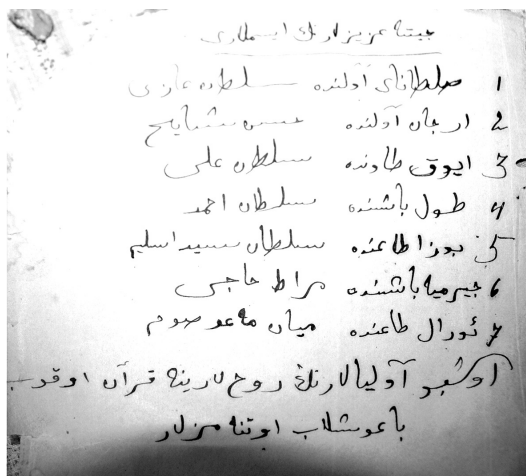 جيته عزيزلرنك ايسملاری
1 صلطانای آولنده سلطان غازی
2 ارجان آولنده حسن شيايح
3 ايوق طاونده سلطان علی
4 طول باشنده سلطان احمد
5 بوزاطاعنده سلطان سيد اسليم
6 جيرميه باشنده مراط حاجی
7 ئورال طاعنده ميان ماعوصوم
اوشبو آوليالارنڭ روح لارينه قرآن اوقوب
باعوشلاب اوتنه مزلار